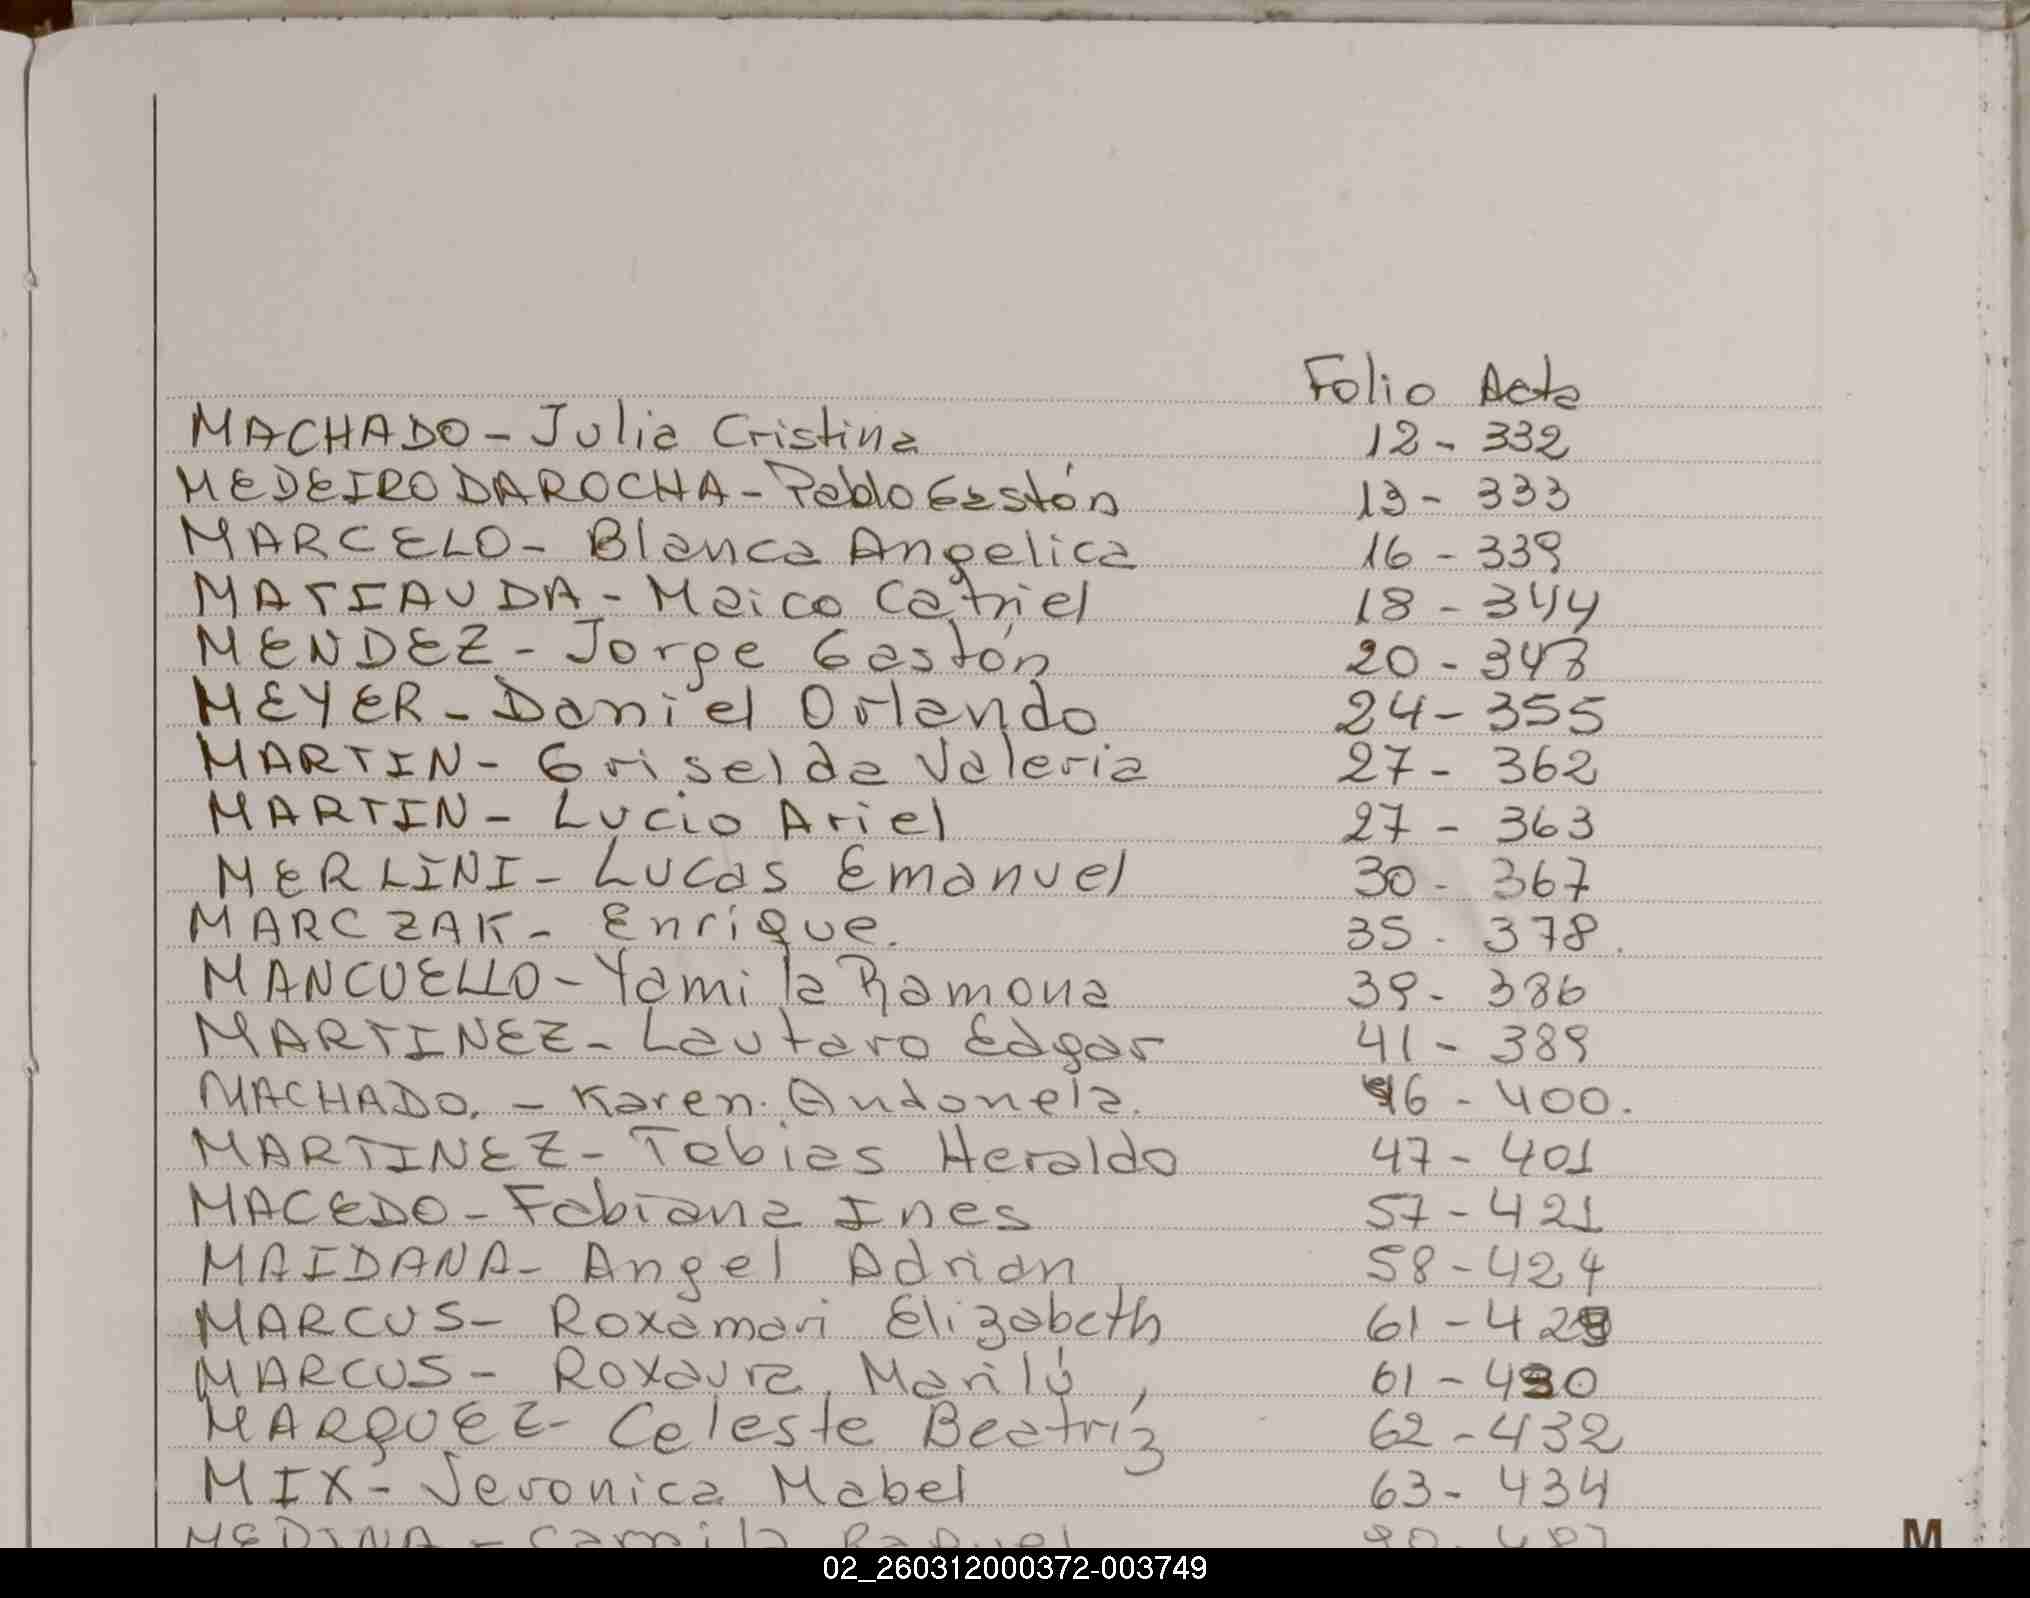 Folio Acta
MACHADO - Julia Cristina 12 - 332
MEDEIRO DAROCHA - Pablo Gastón 13 - 333
MARCELO - Blanca Angelica 16 - 339
MATIAUDA - Maico Catriel 18 - 344
MENDEZ - Jorge Gastón 20 - 347
MEYER - Daniel Orlando 24 - 355
MARTIN - Griselda Valeria 27 - 362
MARTIN - Lucio Ariel 27 - 363
MERLINI - Lucas Emanuel 30 - 367
MARCZAK - Enrique. 35 - 378.
MANCUELLO - Yamila Ramona 39 - 386
MARTINEZ - Lautaro Edgar 41 - 389
MACHADO. - Karen. Andonela. 46 - 400.
MARTINEZ - Tobias Heraldo 47 - 401
MACEDO - Fabiana Ines 57 - 421
MAIDANA - Angel Adrian 58 - 424
MARCUS - Roxamari Elizabeth 61 - 429
MARCUS - Roxaura, Marilú, 61 - 430
MARQUEZ - Celeste Beatríz 62 - 432
MIX - Veronica Mabel 63 - 434
MEDINA - Camila Raquel
M
02_260312000372-003749